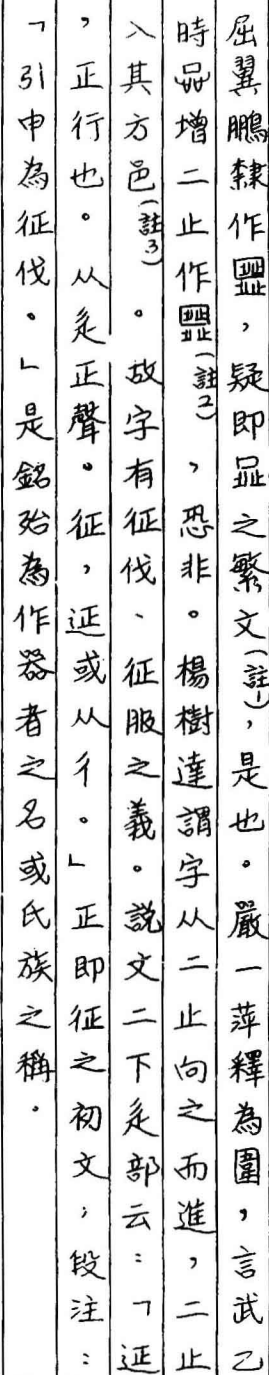 屈翼鵬隸作,疑即之繁文(註1),是也。嚴一萍釋為圍,言武乙
時增二止作(註2),恐非。楊樹達謂字从二止向之而進,二止
入其方邑(註3)。故字有征伐、征服之義。說文二下辵部云:「𨒌
,正行也。从辵正聲。征,𨒌或从彳。」正即征之初文;段注:
「引申為征伐。」是銘殆為作器者之名或氏族之稱.